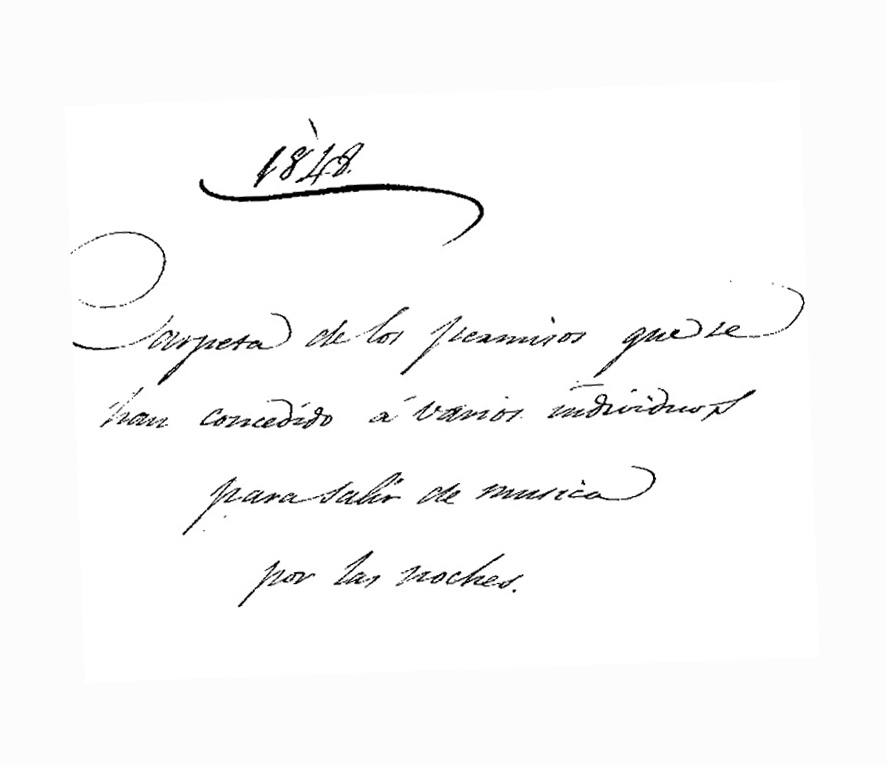 1848.
Carpeta de los permisos que se
han concedido á varios individuos
para salir de musica
por las noches.